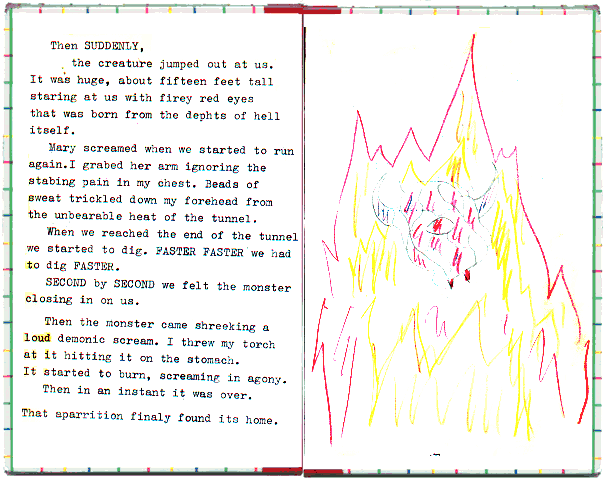 Then SUDDENLY,
the creature jumped out at us.
It was huge, about fifteen feet tall
staring at us with firey red eyes
that was born from the dephts of hell
itself.
Mary screamed when we started to run
again.I grabed her arm ignoring the
stabing pain in my chest. Beads of
sweat trickled down my forehead from
the unbearable heat of the tunnel.
When we reached the end of the tunnel
we started to dig. FASTER FASTER we had
to dig FASTER.
SECOND by SECOND we felt the monster
closing in on us.
Then the monster came shreeking a
loud demonic scream. I threw my torch
at it hitting it on the stomach.
It started to burn, screaming in agony.
Then in an instant it was over.
That aparrition finaly found its home.